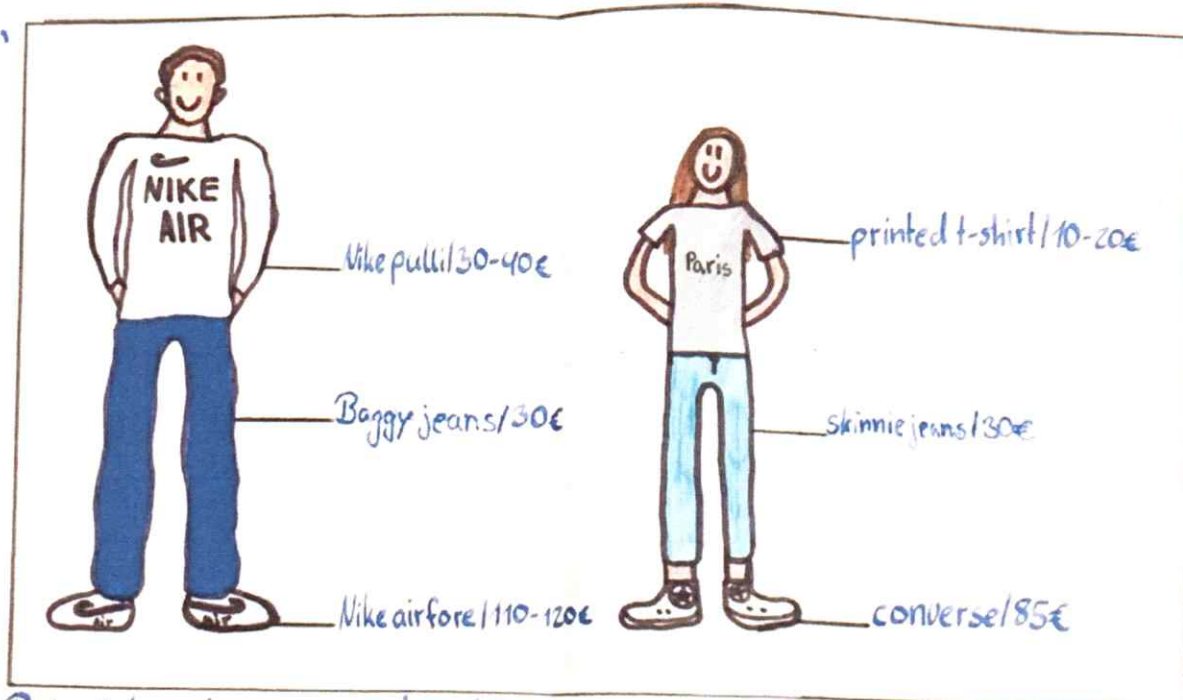 NIKE
AIR
Nike pulli/30-40€
Baggy jeans/30€
Nike airfore/110-120€
air
air
Paris
printed t-shirt/10-20€
skinnie jeans/30€
converse/85€